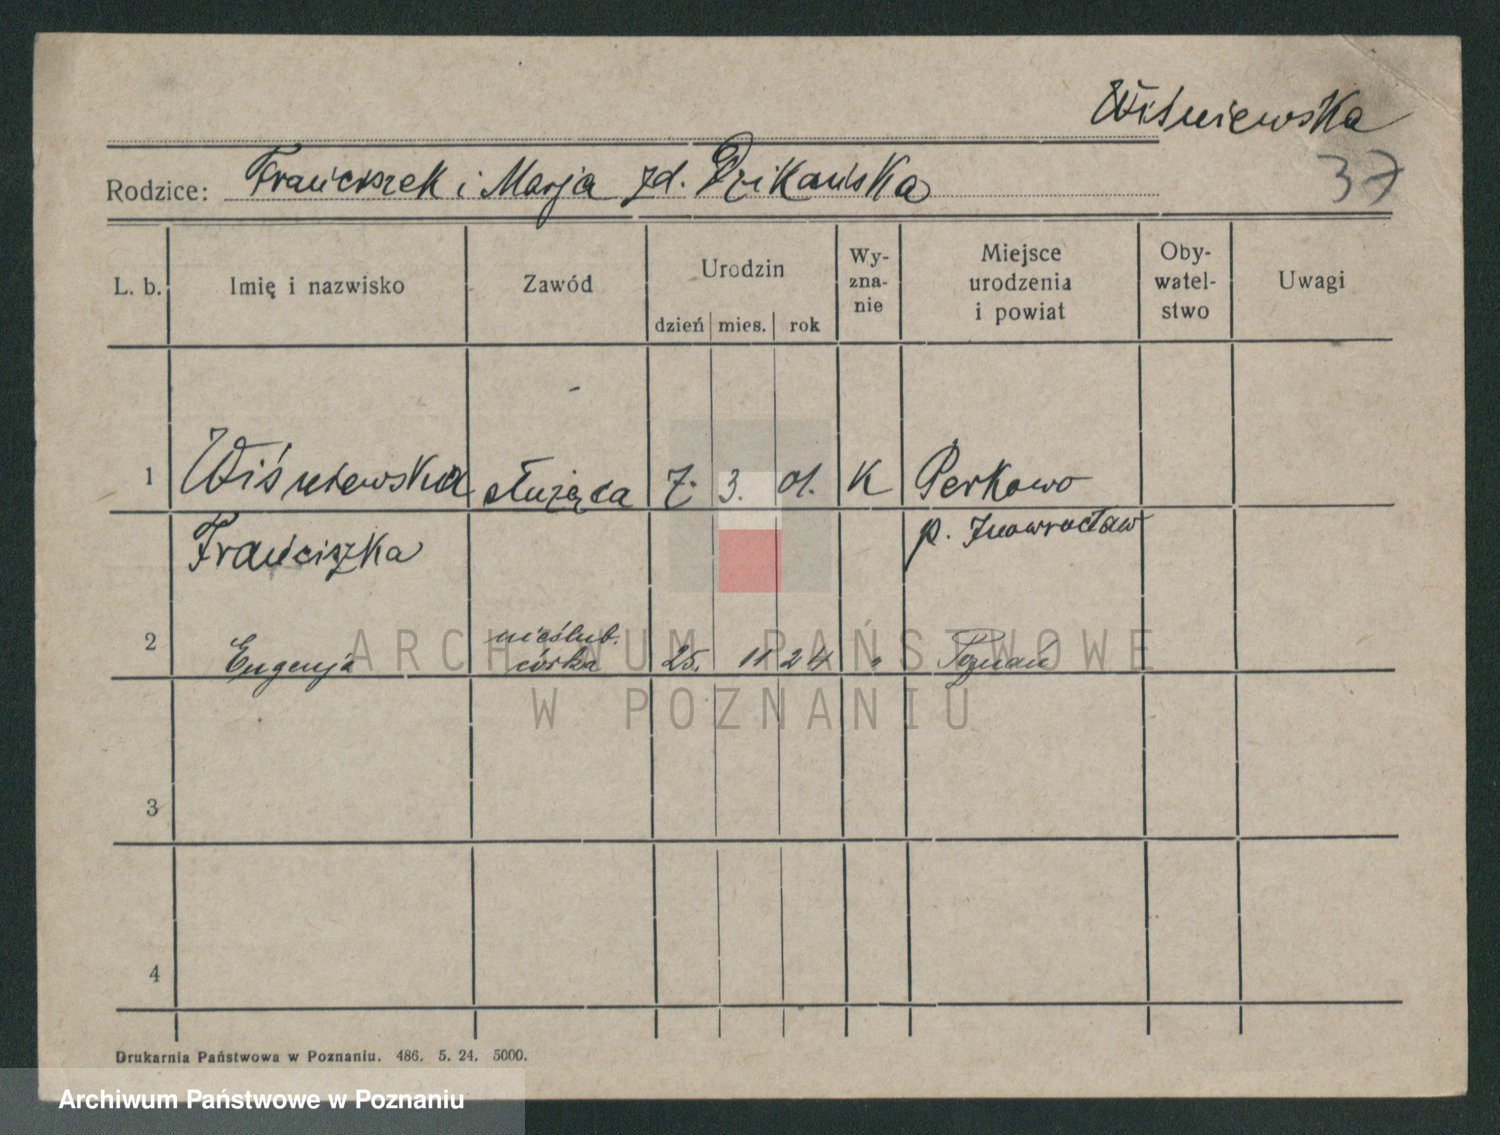 Wiśniewska
37
Rodzice: Franciszek i Marja zd. Dzikańska
L. b. Imię i nazwisko Zawód Urodzin dzień mies. rok Wy-zna-nie Miejsce urodzenia i powiat Oby-watel-stwo Uwagi
1 Wiśniewska służąca 7. 3. 01. K Perkowo
Franciszka p. Inowrocław
nieślub.
2 Eugenja córka 25. 11 24 " Poznań
3
4
Drukarnia Państwowa w Poznaniu. 486. 5. 24. 5000.
ARCHIWUM PAŃSTWOWE
W POZNANIU
Archiwum Państwowe w Poznaniu